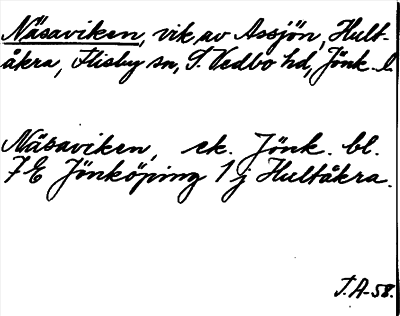 Näsaviken, vik av Assjön, Hult-
åkra, Flisby sn, S. Vedbo hd, Jönk. l.
Näsaviken, ek. Jönk. bl.
7E Jönköping 1 j Hultåkra.
T.A-58.